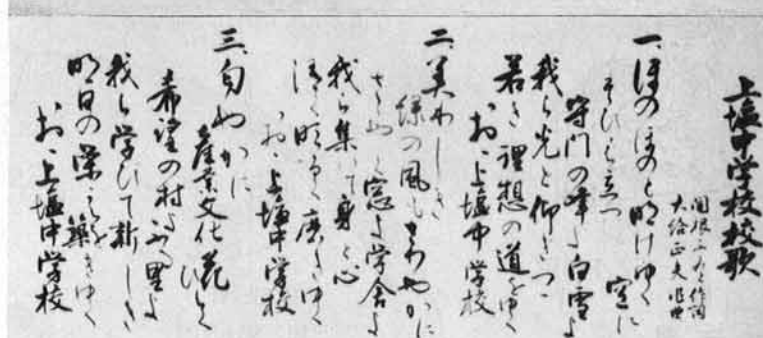 上塩中学校校歌
関根 作詞
大給正夫作曲
一、ほのぼのと明けゆく空に
そびえ立つ
守門の峰よ白雪よ
我ら光と仰ぎつゝ
若き理想の道をゆく
おゝ上塩中学校
二、美わしき
緑の風もさわやかに
窓よ学舎よ
我ら集いて身と心
清く明るく磨きゆく
おゝ上塩中学校
三、匂やかに
産業文化花ひらく
希望の村よ 里よ
我ら学びて新しき
明日の栄えを築きゆく
おゝ上塩中学校